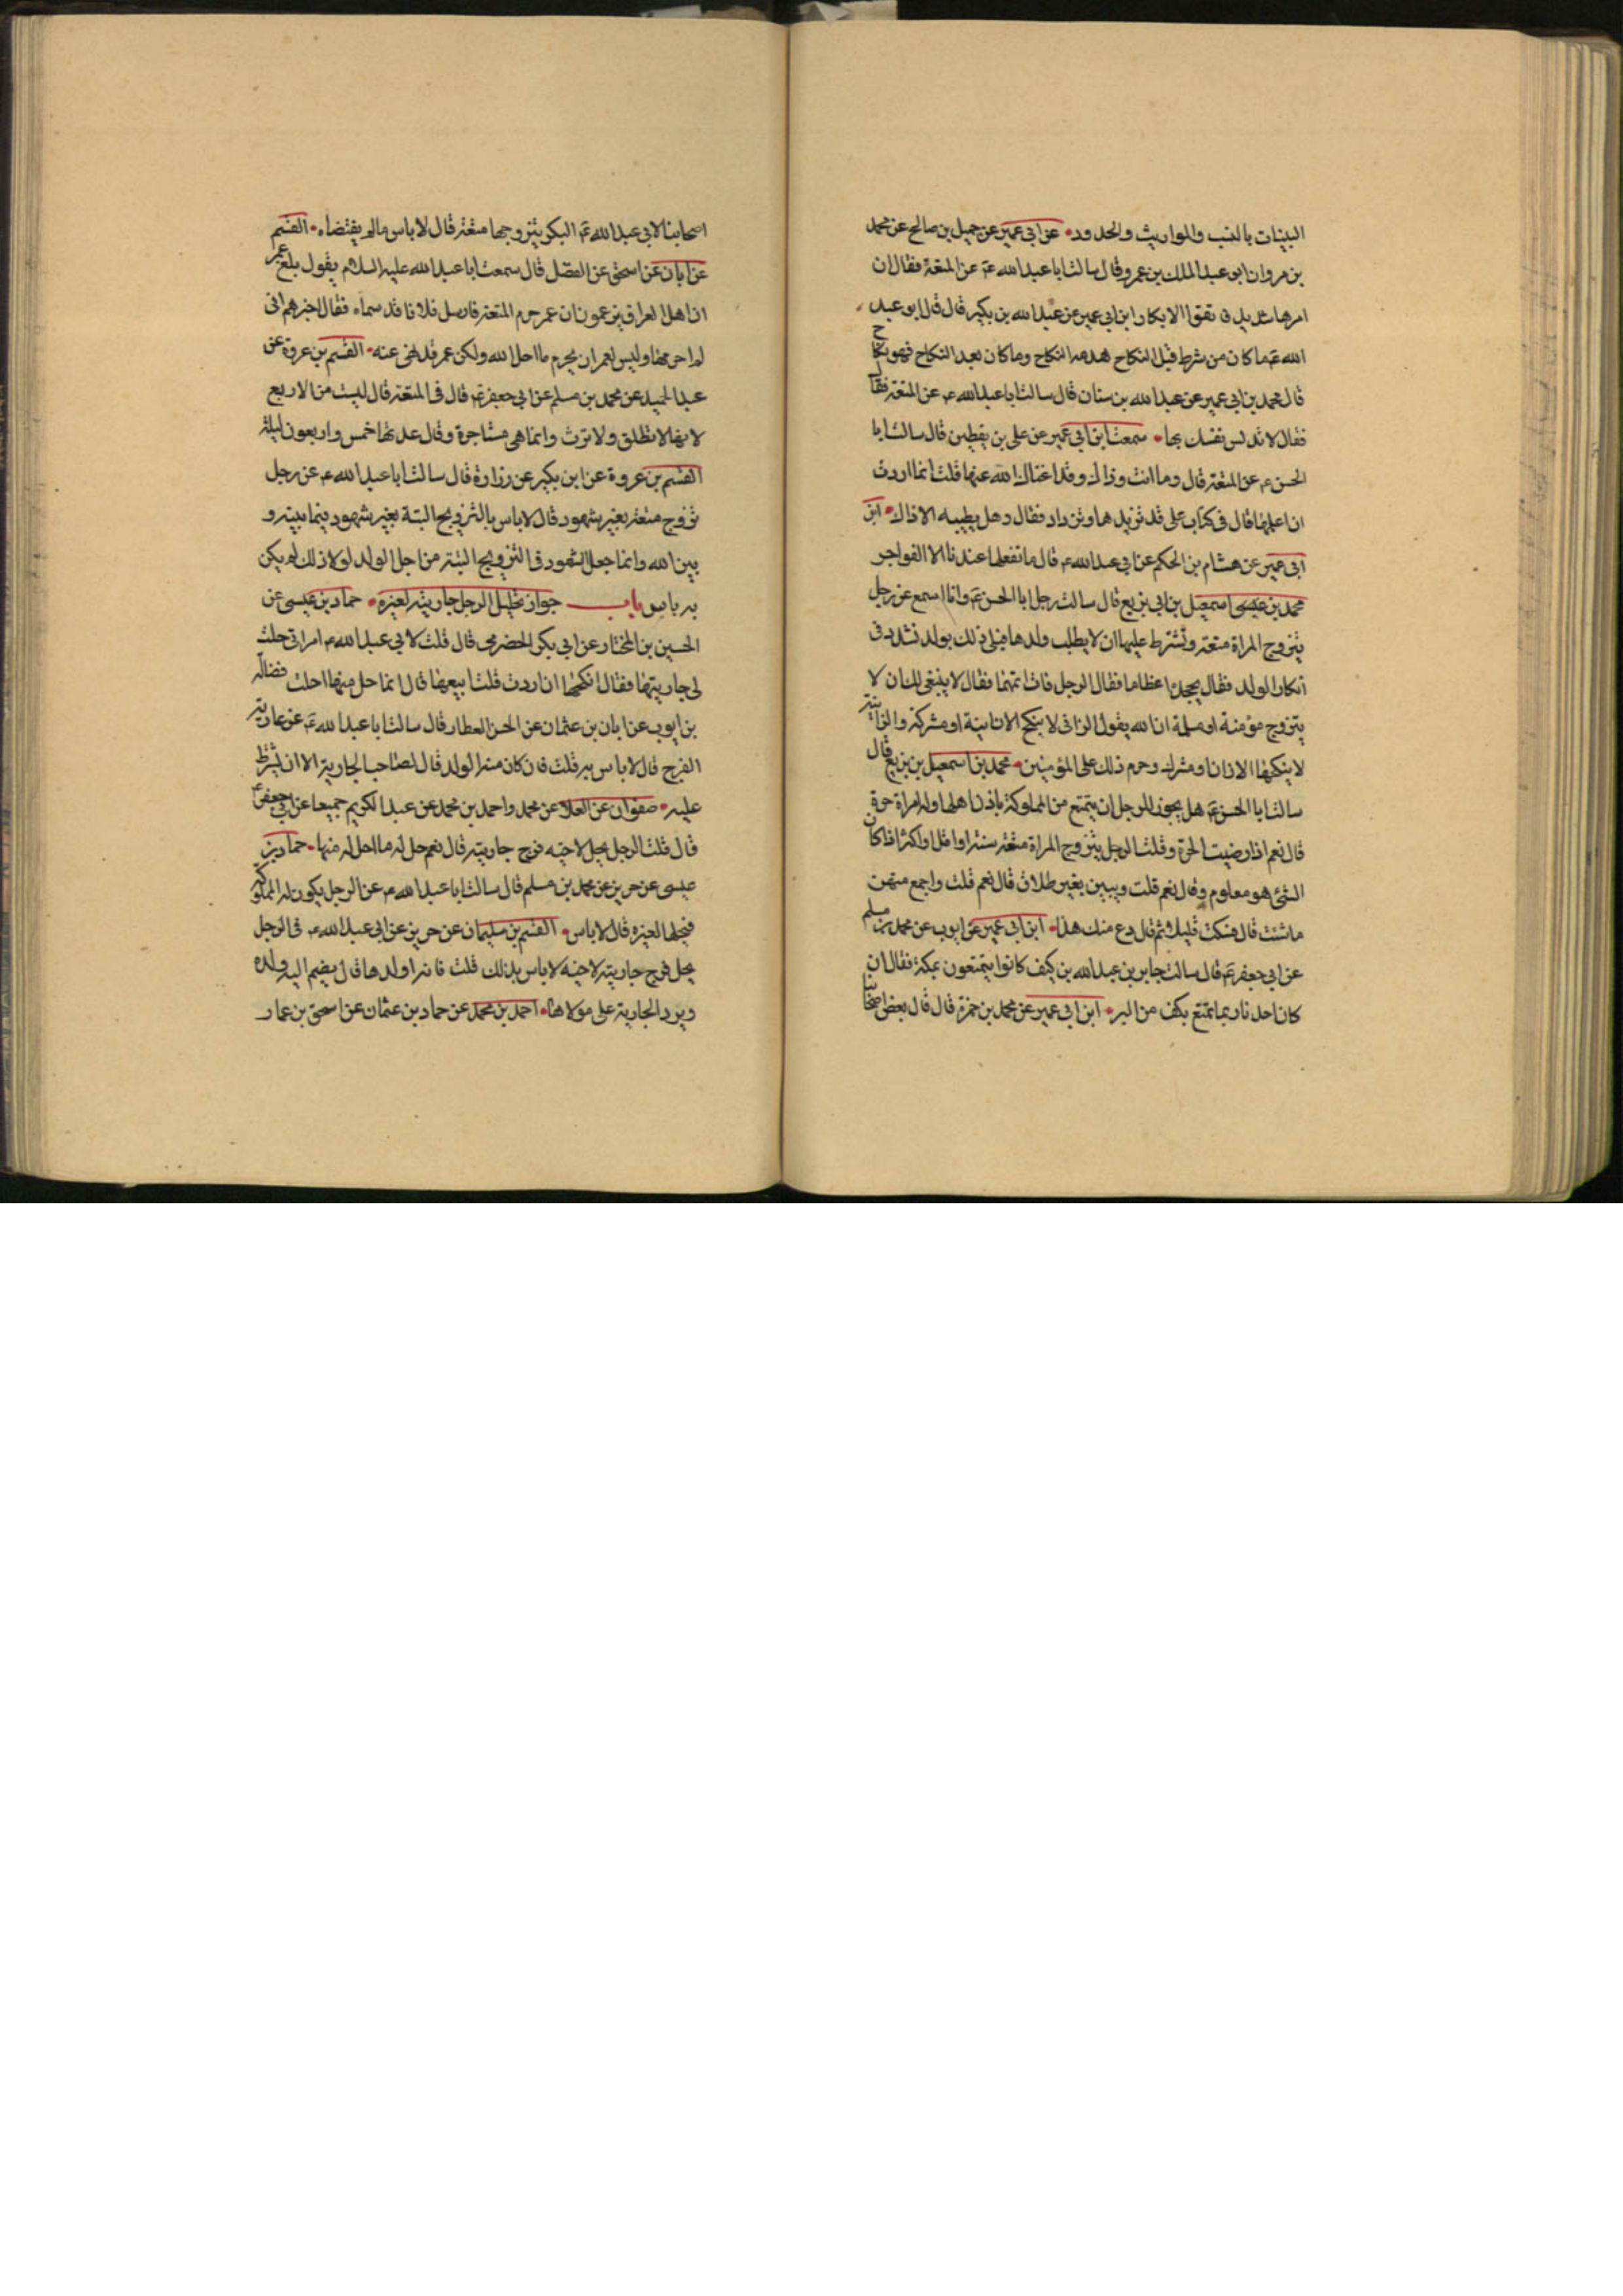 البينات بالنسب والمواريث والحدود • عن ابى عمير عن جميل بن صالح عن محمد
بن مروان ابى عبد الملك بن عمرو قال سالت ابا عبد الله ع عن المتعة فقال ان
امرها شديد فاتقوا الابكار ابن ابى عمير عن عبد الله بن بكير قال قال ابو عبد
الله ع ما كان من شرط قبل النكاح هدمه النكاح وما كان بعد النكاح فهو نكاح
قال محمد بن ابى عمير عن عبد الله بن سنان قال سالت ابا عبد الله ع عن المتعة فقا
فقال لا تدنس نفسك بها • سمعت ابن ابى عمير عن على بن يقطين قال سالت ابا
الحسن ع عن المتعة قال وما انت وذاك وقد اغناك الله عنها قلت انما اردت
ان اعلمها قال فى كتاب على قد نزيدها ونزداد فقال وهل يطيبه الا ذاك • ابن
ابى عمير عن هشام بن الحكم عن ابى عبد الله ع قال ما تفعلها عندنا الا الفواجر
محمد بن عيسى اسمعيل بن ابى بزيع قال سالت رجل ابا الحسن ع وانا اسمع عن رجل
يتزوج المراة متعة وتشترط عليها ان لا يطلب ولدها فياتى ذلك بولد فشدد فى
انكار الولد فقال يجحده اعظاما فقال الرجل فان اتهمها فقال لا ينبغى لك ان لا
يتزوج مؤمنة او مسلمة ان الله يقول الزانى لا ينكح الا زانية او مشركة والزانية
لا ينكحها الا زان او مشرك وحرم ذلك على المؤمنين • محمد بن اسمعيل بن بزيع قال
سالت ابا الحسن ع هل يجوز للرجل ان يتمتع من المملوكة باذن اهلها وله امراة حرة
قال نعم اذا رضيت الحرة وقلت الرجل يتزوج المراة متعة سنة او اقل او اكثر اذا كان
الشئ هو معلوم وقال نعم قلت ويبين بغير طلاق قال نعم قلت واجمع منهن
ما شئت قال فسكت قليلا ثم قال دع منك هذا • ابن ابى عمير عن ايوب عن محمد بن مسلم
عن ابى جعفر ع قال سالت جابر بن عبد الله بن كيف كانوا يتمتعون بمكة فقال ان
كان احدنا ربما تمتع بكف من البر • ابن ابى عمير عن محمد بن حمزة قال قال بعض اصحابنا
اصحابنا لابى عبد الله ع البكر يتزوجها متعة قال لا باس ما لم يفتضاه • القسم
عن ابان عن اسحق عن الفضل قال سمعت ابا عبد الله عليه السلام يقول بلغ عمر
ان اهل العراق يزعمون ان عمر حرم المتعة فارسل فلانا قد سماه فقال اخبرهم انى
لم احرمها وليس لعمر ان يحرم ما احل الله ولكن عمر قد نهى عنه • القسم بن عروة عن
عبد الحميد عن محمد بن مسلم عن ابى جعفر ع قال فى المتعة قال ليست من الاربع
لانها لا تطلق ولا ترث وانما هى مستاجرة وقال عدتها خمس واربعون ليلة
القسم بن عروة عن ابن بكير عن زرارة قال سالت ابا عبد الله ع عن رجل
تزوج متعة بغير شهود قال لا باس بالتزويج البتة بغير شهود فيما بينه و
بين الله وانما جعل الشهود فى التزويج البتة من اجل الولد لولا ذلك لم يكن
به باس باب جواز تحليل الرجل جاريته لغيره • حماد بن عيسى عن
الحسين بن المختار عن ابى بكر الحضرمى قال قلت لابى عبد الله ع امراتى حلت
لى جاريتها فقال انكحها ان اردت قلت ابيعها قال انما حل منها احلت فضالة
بن ايوب عن ابان بن عثمان عن الحسن العطار قال سالت ابا عبد الله ع عن عارية
الفرج قال لا باس به قلت فان كان منه الولد قال لصاحب الجارية الا ان يشترط
عليه • صفوان عن العلا عن محمد واحمد بن محمد عن عبد الكريم جميعا عن ابى جعفر ع
قال قلت الرجل يحل لاخيه فرج جاريته قال نعم حل له ما احل له منها • حماد بن
عيسى عن حريز عن محمد بن مسلم قال سالت ابا عبد الله ع عن الرجل يكون له المملوكة
فيحلها لغيره قال لا باس • القسم بن سليمان عن حريز عن ابى عبد الله ع فى الرجل
يحل فرج جاريته لاخيه لا باس بذلك قلت فانه اولدها قال يضم اليه ولده
ويرد الجارية على مولاها • احمد بن محمد عن حماد بن عثمان عن اسحق بن عمار